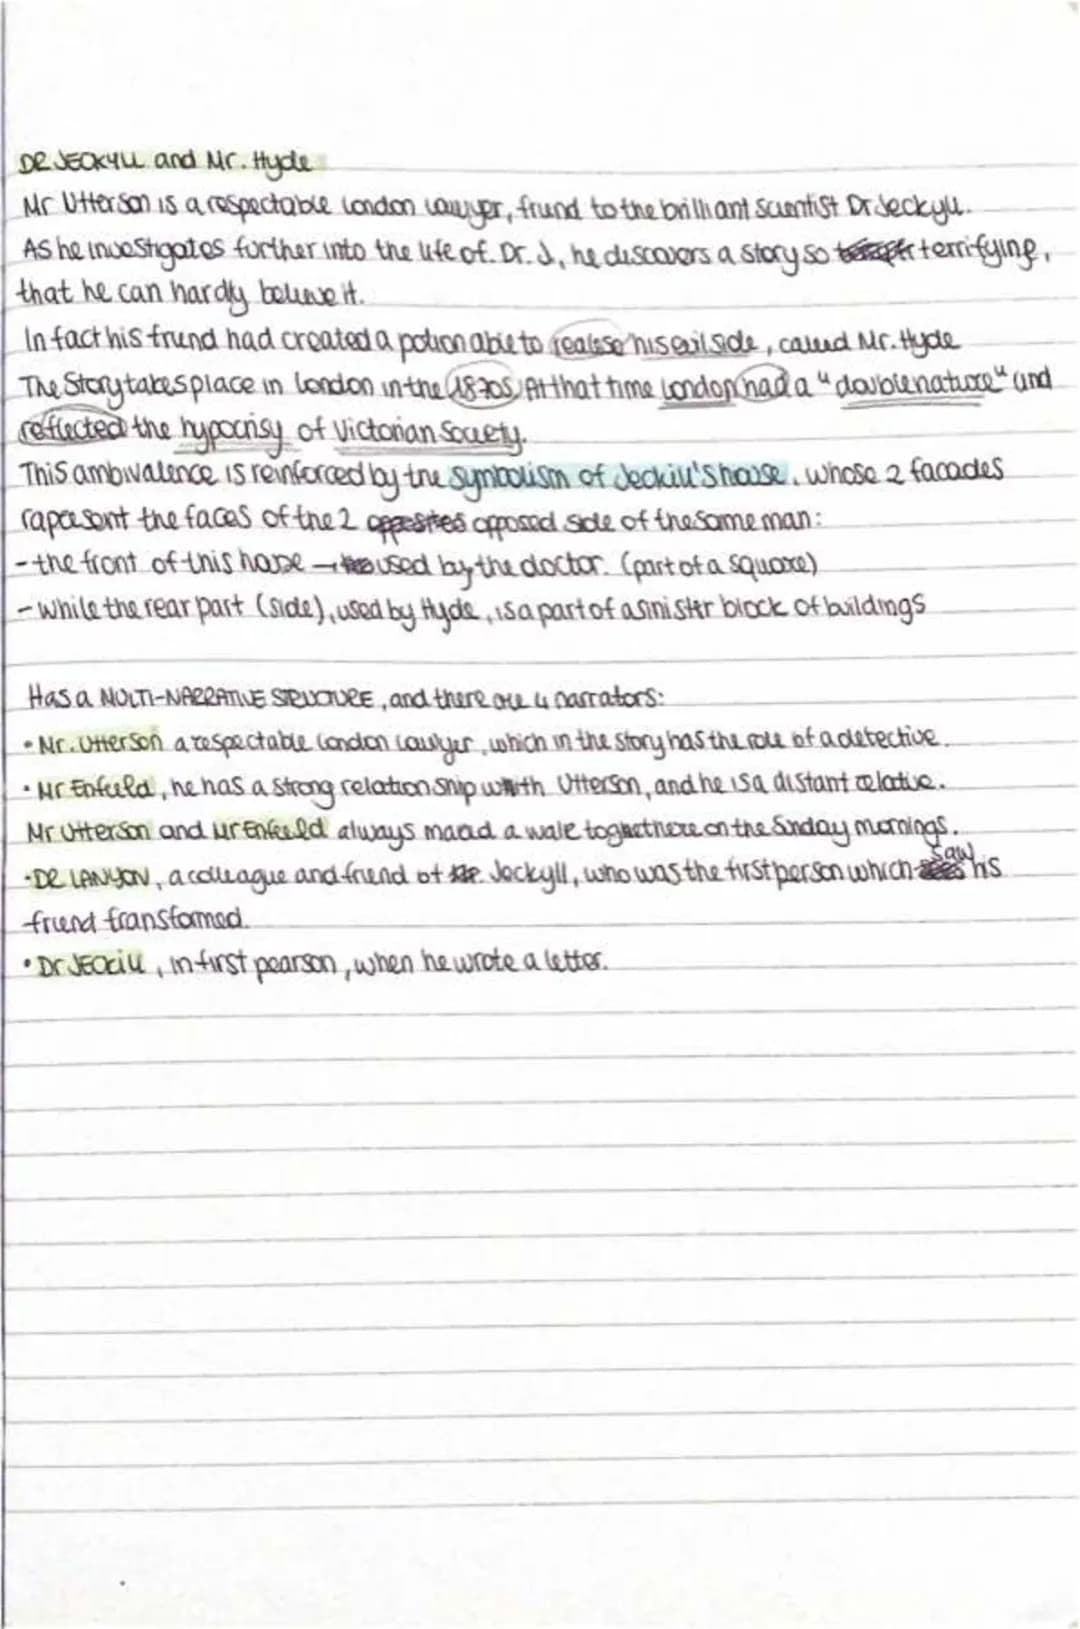 DR JECKYLL and Mr. Hyde
Mr Utterson is a respectable London lawyer, friend to the brilliant scientist Dr Jeckyll.
As he investigates further into the life of. Dr. J, he discovers a story so terrifying,
that he can hardly believe it.
In fact his friend had created a potion able to realese his evil side, called Mr. Hyde
The Story takes place in London in the 1870s. At that time London had a "double nature" and
reflected the hypocrisy of Victorian Society.
This ambivalence is reinforced by the symbolism of Jeckill's house, whose 2 facades
rapresent the faces of the 2 opposed side of the same man:
- the front of this house → used by the doctor. (part of a square)
- while the rear part (side), used by Hyde, is a part of a sinister block of buildings
Has a MULTI-NARRATIVE STRUCTURE, and there are 4 narrators:
• Mr. Utterson a respectable London lawyer, which in the story has the role of a detective.
• Mr Enfield, he has a strong relation ship with Utterson, and he is a distant relative.
Mr Utterson and Mr Enfield always a walk on the Sunday mornings.
• DR LANYON, a colleague and friend of Jeckyll, who was the first person which saw his
friend transformed.
• Dr JECKILL, in first pearson, when he wrote a letter.